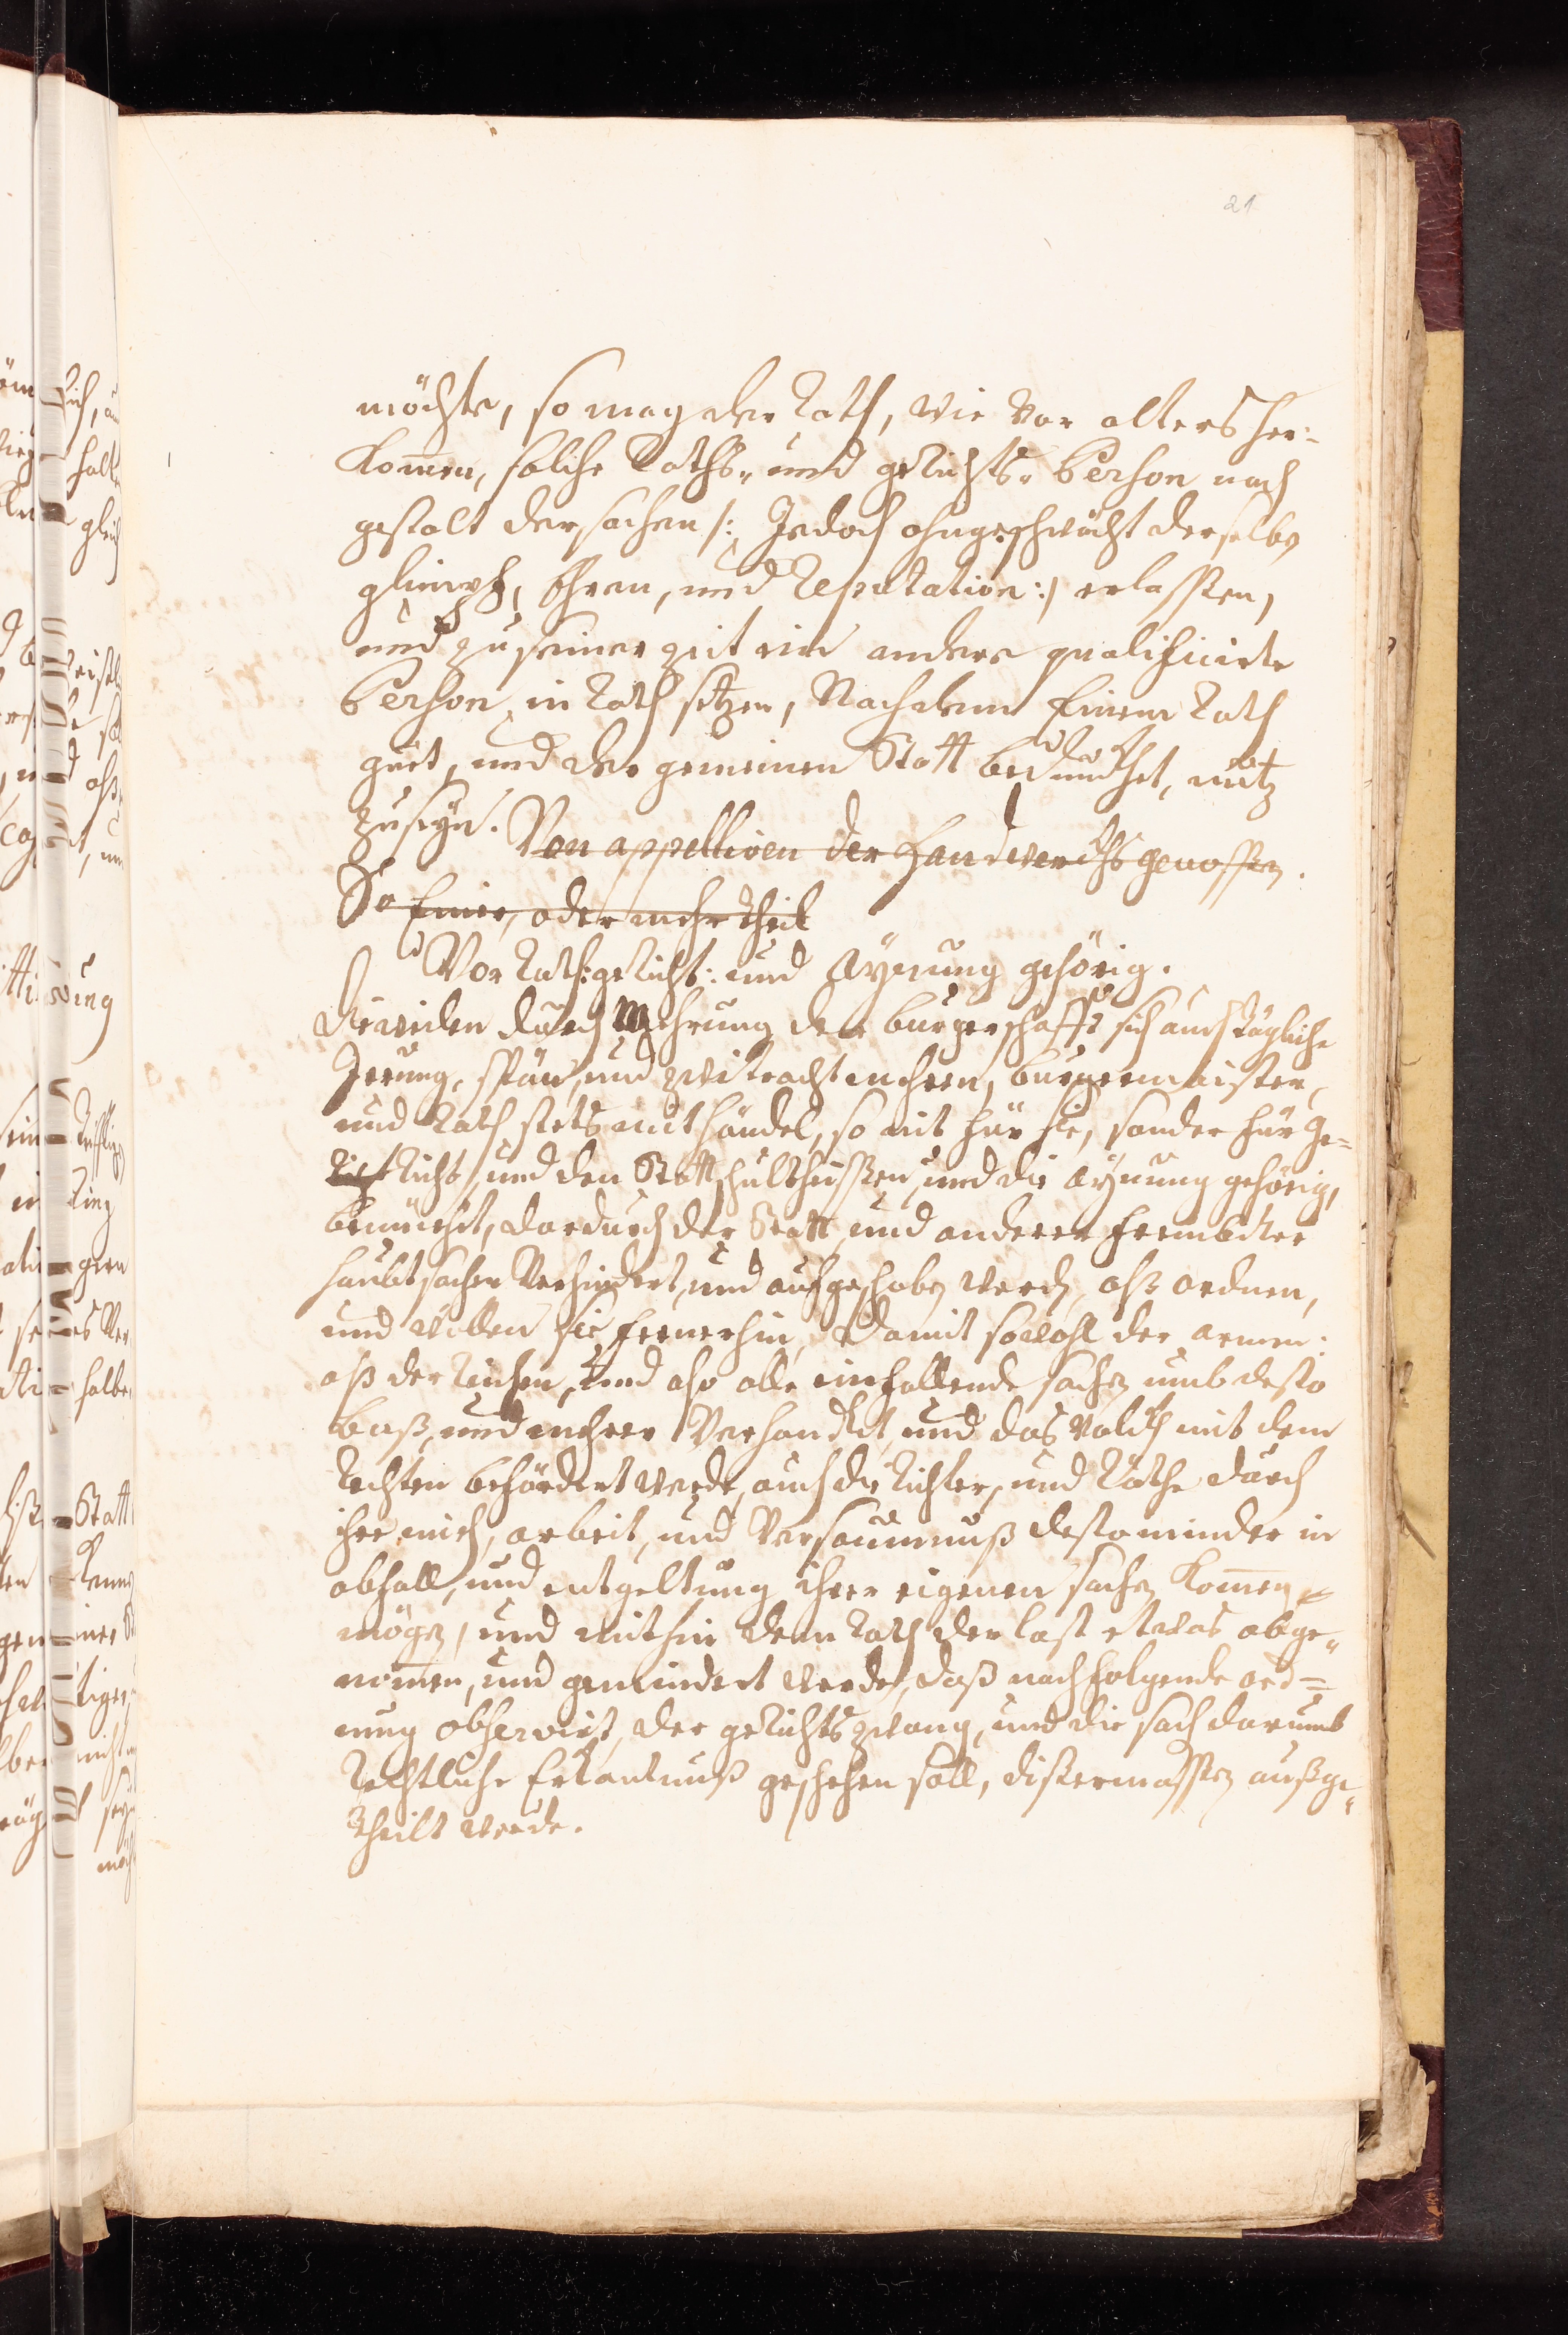 21
möchte, so mag der Rath, wie von alters her-
Kom̄en, solche Raths- und gerichts- Person nach
gestalt der sachen /: Jedoch ohngeschwächt derselbē
glimpf, Ehren, und Reputation :/ erlassen,
und zu seiner zeit ein andere qualificirte
Person in Rath setzen, Nachdem Einem Rath
guet, und der gemeinen Statt bedunckhet, nutz
zuseyn. Von appelliren der Handwerckhs genossen.
So Einer, oder mehr theil
Vor Rath: gericht: und Aynung gehörig.
Dieweilen durch Mehrung der burgerschafft sich auch tägliche
Irrung, spän, und zwitracht mehren, burgermaister,
und Rath stets mit händel, so nit für sie, sonder für Ge-
richt und den Stattschultheissen, und die Aynung gehörig,
bemüehet, dardurch der Statt und anderer frembder
haubtsachen verhindert, und aufgeschobē werdē, alß ordnen,
und wöllen sie fernerhin, Damit sowohl der armen:
alß der Reichen, und also alle einfallende sachē umb desto
baß, und mehrer verhandlet, und das volckh mit dem
Rechten befördert werde, auch die Richter, und Räthe durch
ihre müeh, arbeit, und versaumnuß desto minder in
abfall, und entgeltung ihrer eigenen sachē kom̄en
mögē, und mithin dem Rath der last etwas abge-
nom̄en, und gemindert werde, daß nachfolgende ord-
nung observirt, der gerichts zwang, und die sach darumb
Rechtliche Erkantnuß geschehen soll, dißermassen außge-
theilt werde.